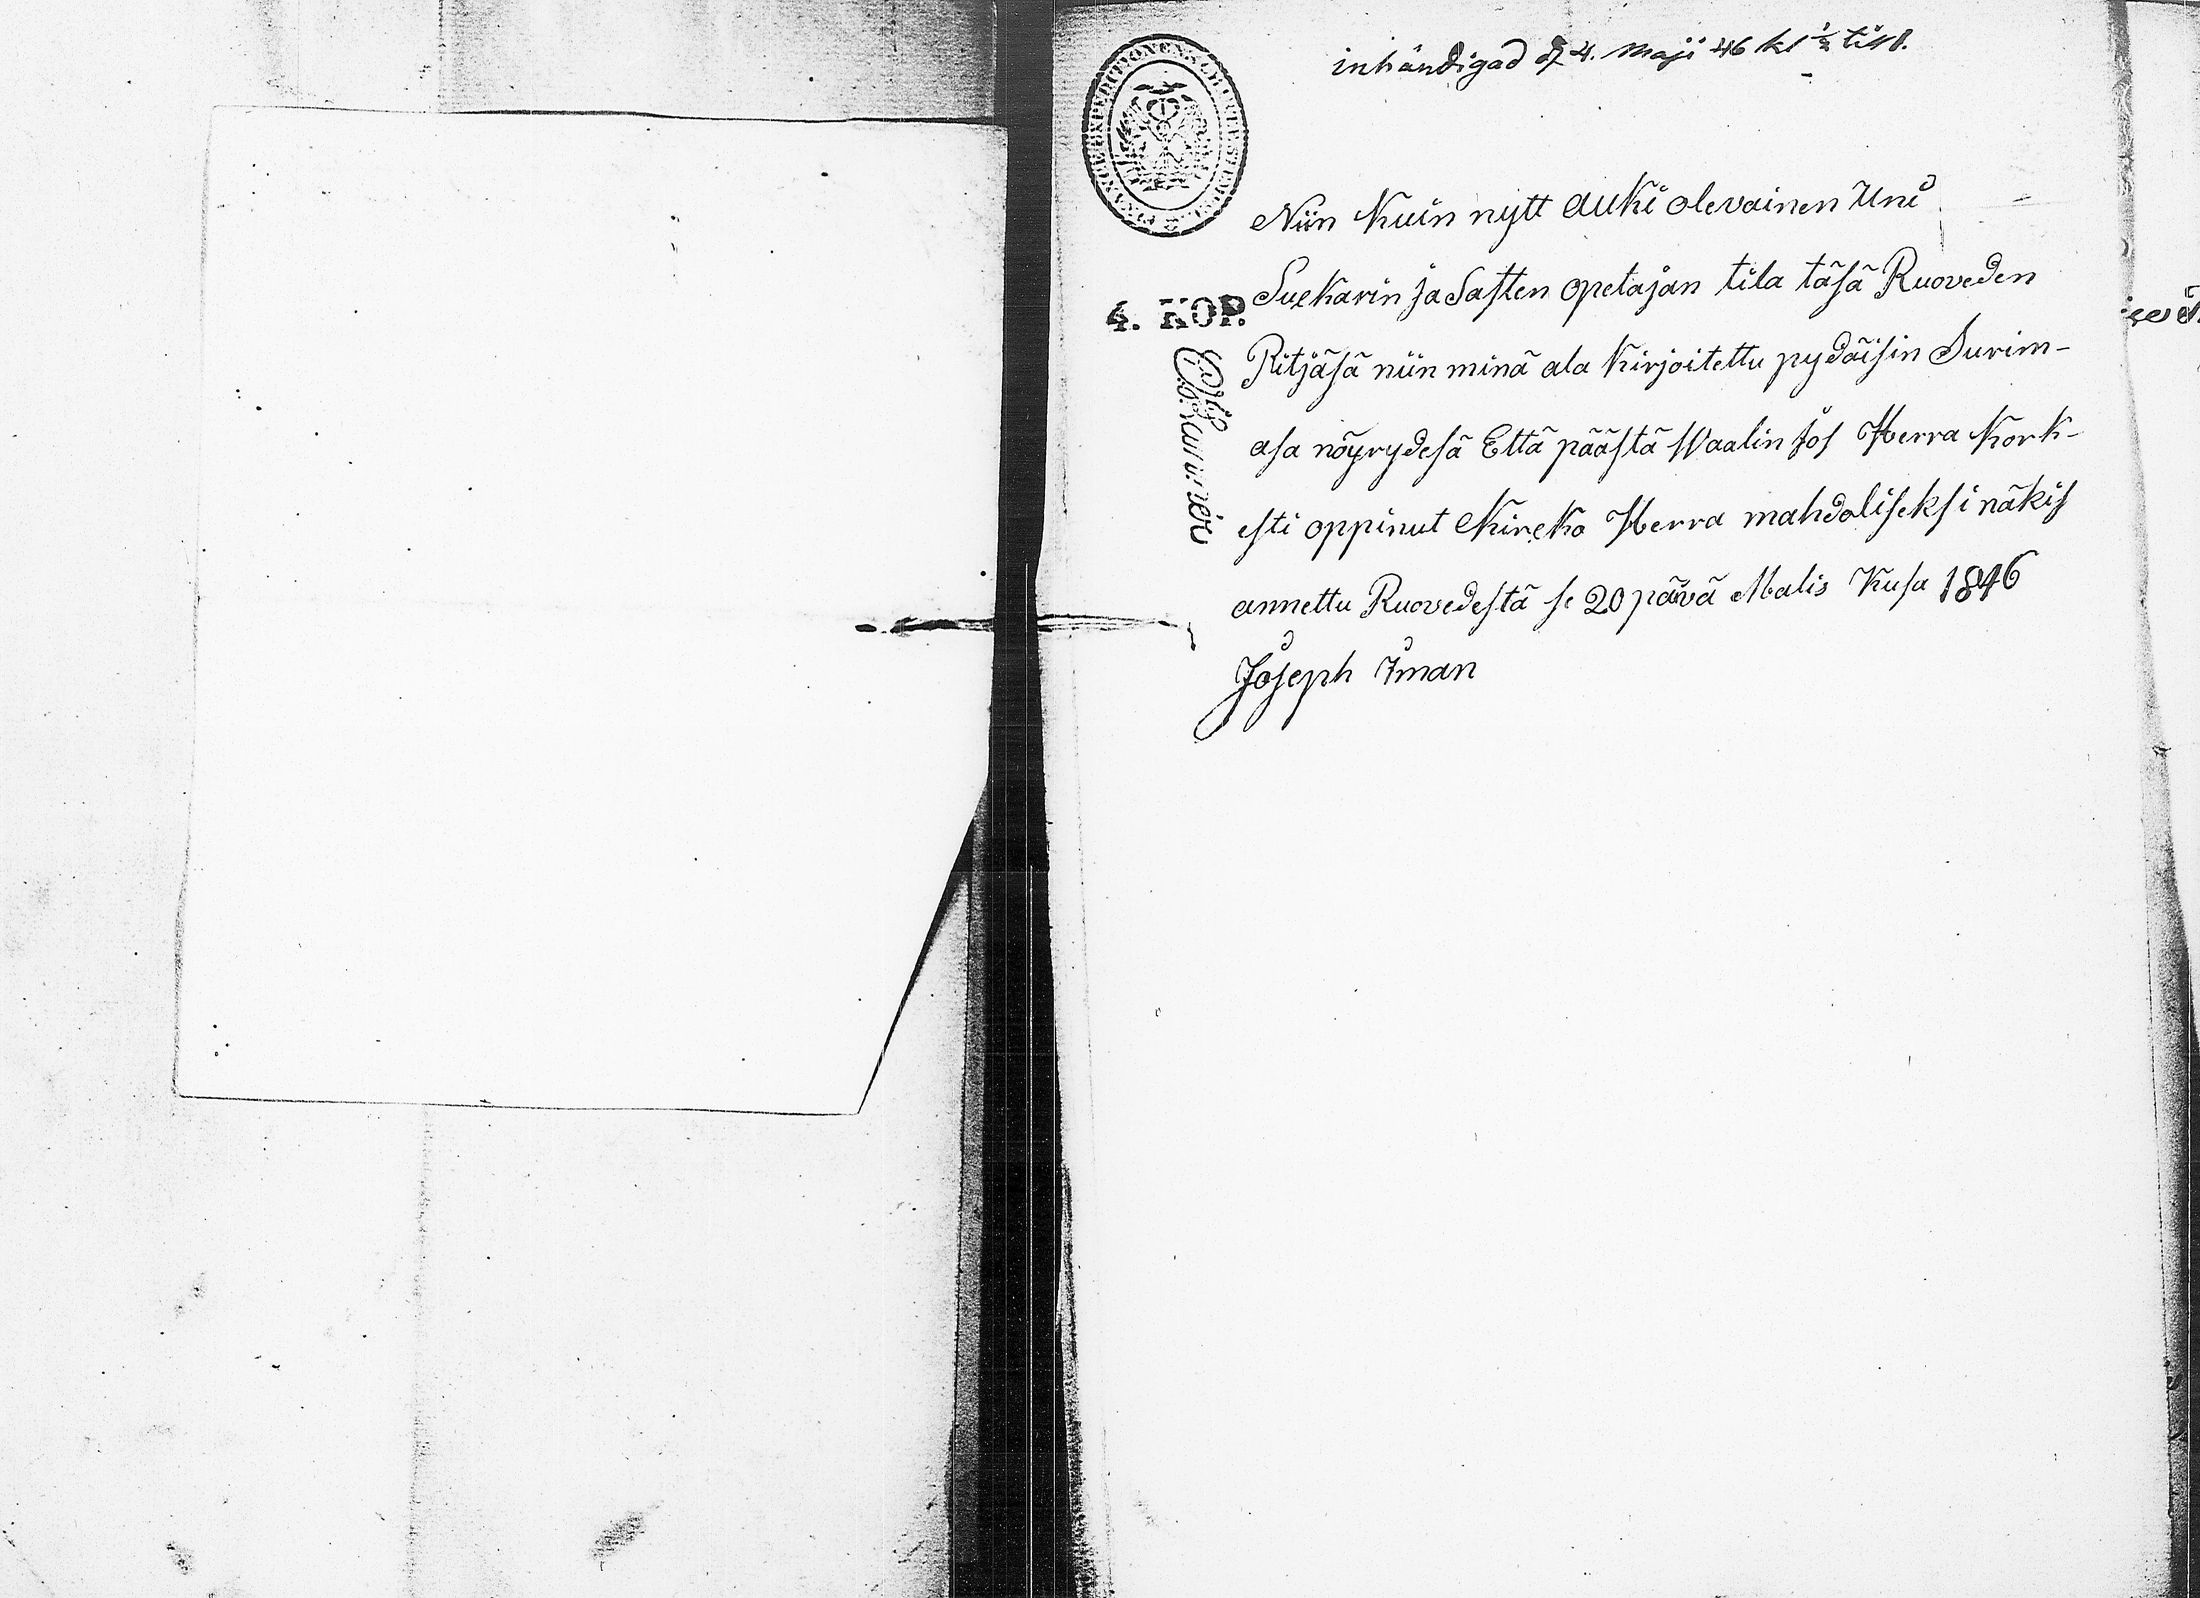 inhändigad d 4. Maji 46 kl ½ till 1.
FINANCE EXPEDITIONENS CHARTÆ STÄMPEL
Niin Kuin nytt auki olevainen Uni
Luckarin ja Lasten opetajan tila täsä Ruoveden
4. KOP.
Pitjäsä niin minä ala Kirjoitettu pydäisin Surim-
asa nöyrydesä Että päästä Waalin jos Herra Kork-
esti oppinut Kircko Herra mahdoliseksi näkis
annettu Ruovedestä se 20 päivä Malis Kusa 1846
Joseph Iman